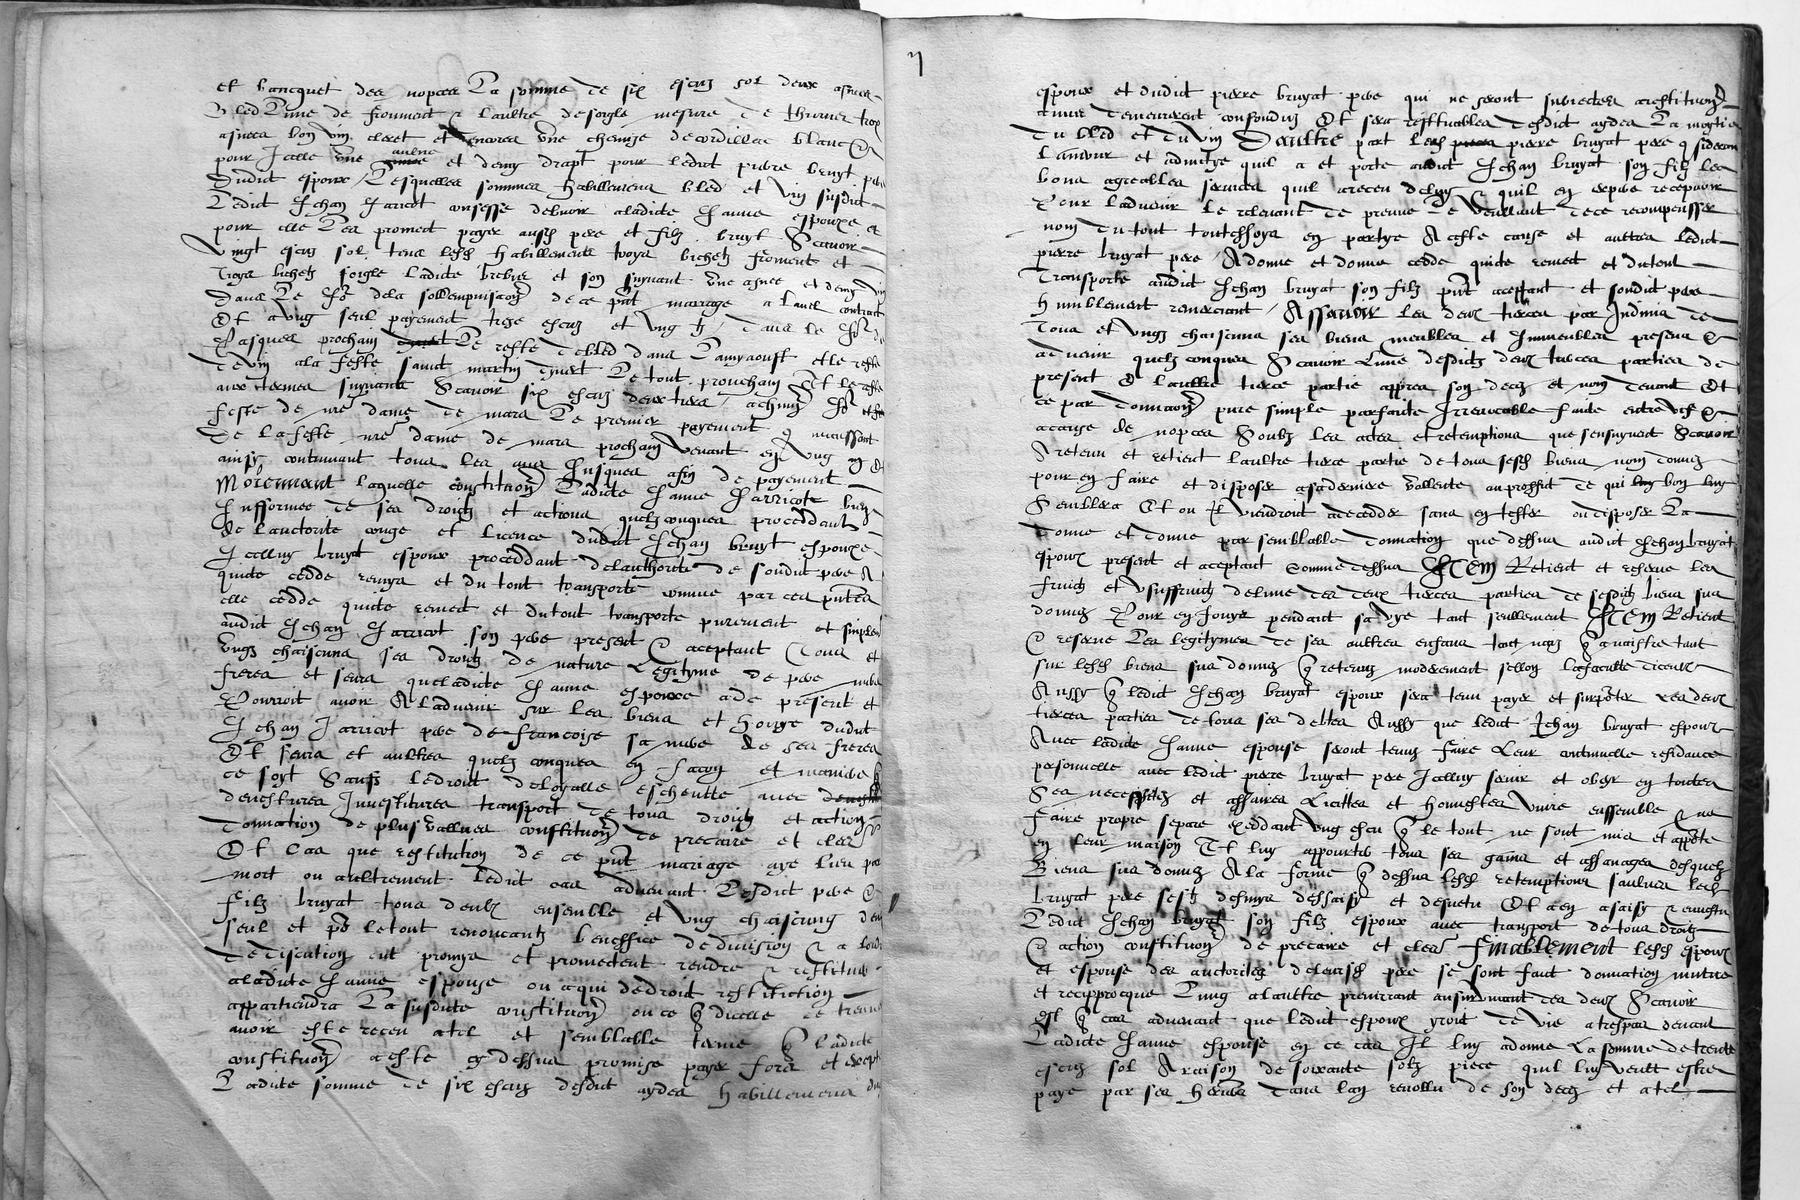 et bancquet des nopces La somme de six escuz sol deux asnees
Bled L'une de froment & l'aultre de soigle mesure de thurines troys
asnees bon vin cleret et encores une chemise de cordillac blanc &
pour Icelle une aulne et demy drapt pour ledict pierre bruyt pere
dudict espoux / Lesquelles sommes habillemens bled et vin susdict
Ledict Jehan Jarricot confesse debvoir a ladicte Janne espouse &
pour elle Les promect payer ausd pere et filz bruyt Scavoir
Vingt escuz sol tous lesd habillements troys bichetz froment et
Troys bichetz soigle ladicte brebis et son suyvant une asnee et demy vin
dans Le Jo de la sollempnisaon de ce pnt mariage a l'aut contract
Et a ung seul payement treze escuz et ung tz / dans le Jo de
Pasques prochain Le reste de bled dans L'amyaoust et le reste
de vin a la feste sainct martin dyvert Le tout prouchain Et le reste
aux termes suyvants Scavoir six escuz deux tiers / a chung Jo et
feste de nre dame de mars Le premier payement
de la feste nre dame de mars prochain venant et ung an &
ainsy continuant tous les ans Jusques a fin de payement
Moiennant laquelle constituon Ladicte Janne Jarricote bien
Jnfformee de ses droictz et actions quelzconques proceddant
de l'auctorite conge et licence dudict Jehan bruyt espoux
Icelluy bruyat espoux proceddant de l'authorite de sondict pere A
quicte cedde remys et du tout transporte comme par ces pntes
elle cedde quicte remect et du tout transporte purement et simplement
audict Jehan Jarricot son pere present & aceptant Tous et
ungs chaiscuns ses droictz de nature Legityme de pere mere
freres et seurs que ladicte Janne espouse a de present et
Pourroit avoir A l'advenir sur les biens et hoirye dudict
Jehan Jarricot pere de francoise sa mere de ses freres
Et seurs et aultres quelz conques en facon et maniere q
ce soyt Saufz le droict de loyalle escheutte avec
devestures Jnvestitures transport de tous droictz et actions &
donnation de plus vallues constituon de precaire et cler
Et Cas que restitution de ce pnt mariage aye lieu par
mort ou aultrement Ledict cas advenant Lesdict pere &
filz bruyat tous deulx ensemble et ung chaiscung deux
seul et po le tout renoncantz beneffice de division & a l'ordre
de discution ont promys et promectent rendre & restituer
a ladicte Janne espouse ou a qui de droict restitiction
appartiendra La susdicte constituon ou ce q dicelle se treuvera
avoir este receu a tel et semblable terme q ladicte
constituon a este cy dessus promise payer fors et excepte
Ladicte somme de six escuz desdict aydes habillemens du
espoux et dudict pierre bruyat pere qui ne seront subiectes a restitution
ains demeureront confondus Et sera restituables desdict aydes La moytie
du bled et du vin Daultre part led pierre bruyat pere q sideran
L'amour et admitye quil a et porte audict Jehan bruyat son filz les
bons agreables services quil a receu de luy & quil en espere recepvoir
Pour l'advenir Le relevant de preuve Le Voullant de ce recompensser
non du tout touteffoys en partye A ceste cause et aultres ledict
pierre bruyat pere / A donne et donne cedde quicte remect et du tout
Transporte audict Jehan bruyat son filz pnt aceptant et sondict pere
humblement remerciant / Asscavoir les deux tierces par Jndivis de
Tous et ungz chaiscuns ses biens meubles et Jmmeubles presens &
advenir quelz conques Scavoir L'une desdictz deux tierces parties de
present & l'aultre tierce partie appres son deces et non devant Et
ce par donnaon pure simple parfaicte Irrevocable faicte entre vifz &
a cause de nopces Soubz les actes et retemptions que sensuyvent Scavoir
A retenu et retient l'aultre tierce partie de tous sesd biens non donnez
pour en faire et disposer a sa derniere vollente au proffict de qui bon luy
Semblera Et ou Il viendroit a decedder sans en tester ou disposer La
donne et donne par semblable donnation que dessus audict Jehan bruyat
espoux present et aceptant comme dessus Item Retient et reserve les
fruictz et usuffruictz de l'une des deux tierces parties de sesdictz biens sus
donnez Pour en Jouyr pendant sa vye tant seullement Item Retient
& reserve Les legitymes de ses aultres enfans tant nez q a naistre tant
sur lesd biens sus donnez q retenuz moderement sellon la faculte diceux
Aussy q ledict Jehan bruyat espoux sera tenu payer et supporter les deux
tierces parties de tous ses debtes Aussy que ledict Jehan bruyat espoux
Avec ladicte Janne espouse seront tenuz faire Leur continuelle residance
personnelle avec ledict pierre bruyat pere Icelluy servir et obeyr en toutes
Ses necessitez et affaires Licittes et honnestes vivre enssemble & ne
faire propre separe exeddant ung escu q le tout ne sont mis et apporte
en leur maison Et luy apporter tous ses gains et affanages desquelz
Biens sus donnez A la forme q dessus lesd retemptions saulves led
bruyat pere sest desmys dessaisy et desvetu Et a en asaisy & envestu
Ledict Jehan bruyat son filz espoux avec transport de tous droictz
& action constituon de precaire et cler Finablement lesd espoux
et espouse des auctoritez de leursd pere se sont faict donnation mutue
et recipprocque L'ung a l'aultre premourant au survivant des deux Scavoir
est q cas advenant que ledict espoux yroit de vie a trespas devant
Ladicte Janne espouse en ce cas Il luy a donne La somme de trente
escuz sol A raison de soixante solz piece quil luy veult estre
paye par ses hoirs dans l'an revollu de son deces et a tel